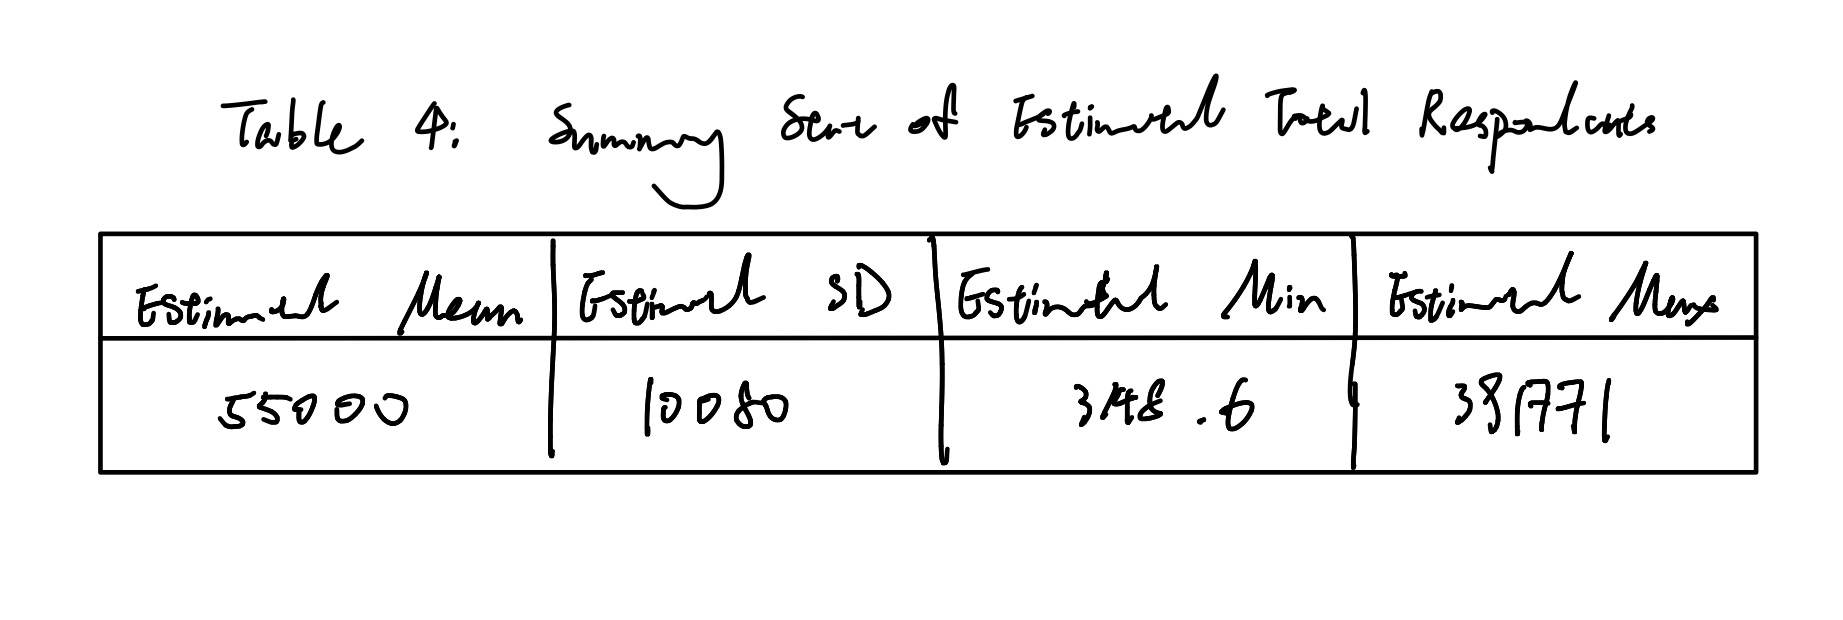 Table 4: Summary Stat of Estimated Total Respondents
Estimated Mean Estimated SD Estimated Min Estimated
55000 10080 348.6 391771